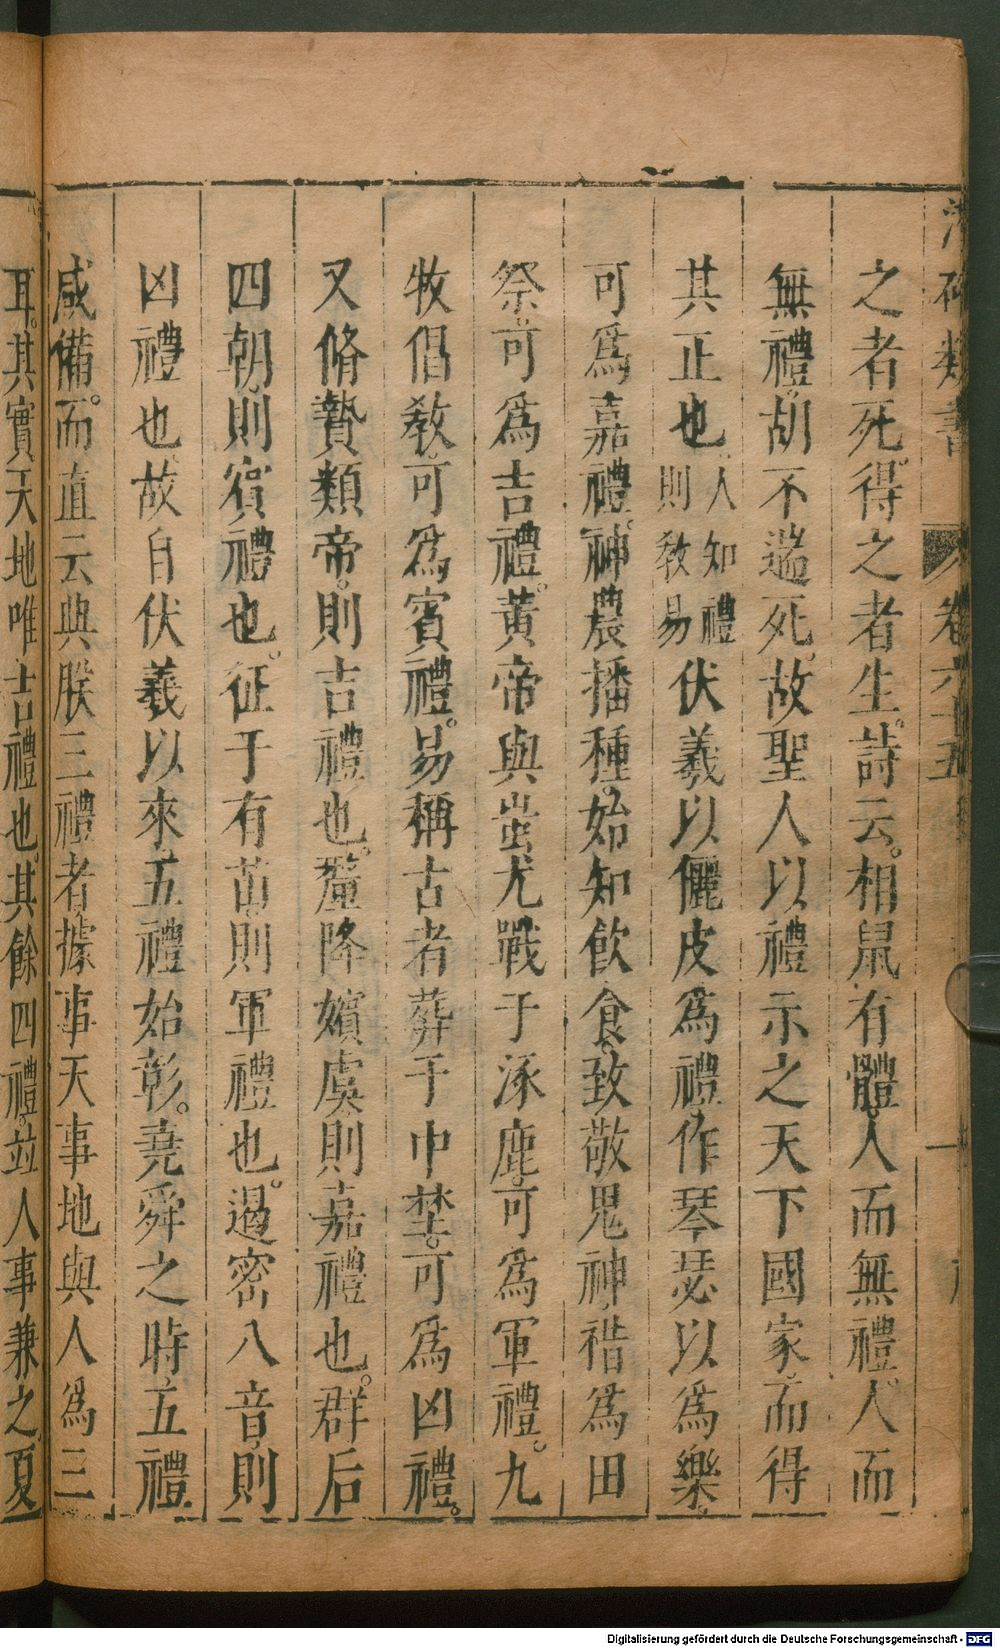 卷六十五
之者死得之者生。詩云。相鼠有體人而無禮。人而
無禮。胡不遄死。故聖人以禮示之天下國家而得
其正也。人知禮則教易伏羲以儷皮為禮。作琴瑟以為樂。
可為嘉禮。神農播種。始知飲食致敬鬼神。䄍為田
祭。可為吉禮。黃帝與蚩尤戰于涿鹿。可為軍禮。九
牧倡教。可為賓禮。易稱古者葬于中埜。可為凶禮。
又脩贄類帝。則吉禮也。釐降嬪虞則嘉禮也。群后
四朝則賓禮也。征于有苗則軍禮也。遏密八音則
凶禮也。故自伏羲以來。五禮始彰。堯舜之時。五禮
咸備。而直云典朕三禮者。據事天事地與人為三
耳。其實天地唯吉禮也。其餘四禮。竝人事兼之。夏
Digitalisierung gefördert durch die Deutsche Forschungsgemeinschaft - DFG